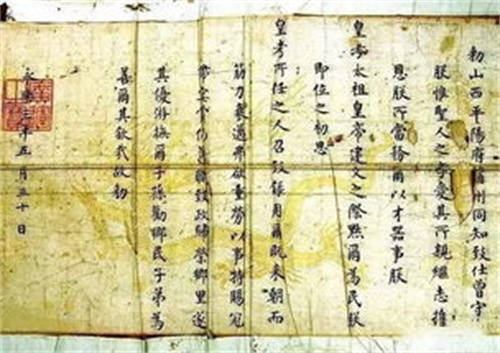 勅山西平陽府州同知致仕曾守
朕惟聖人之孝愛其所親繼志推
恩朕所當務爾以才器事朕
皇考太祖皇帝建文之際黜爾為民朕
即位之初思
皇考所任之人召致錄用爾既来朝而
筋力衰邁弗欲重勞以事特賜冠
帶宴仍舊職致政歸榮鄉里遂
其優游撫爾子孫勸鄉民子弟為
善爾其欽哉故勅
永樂三年五月三十日